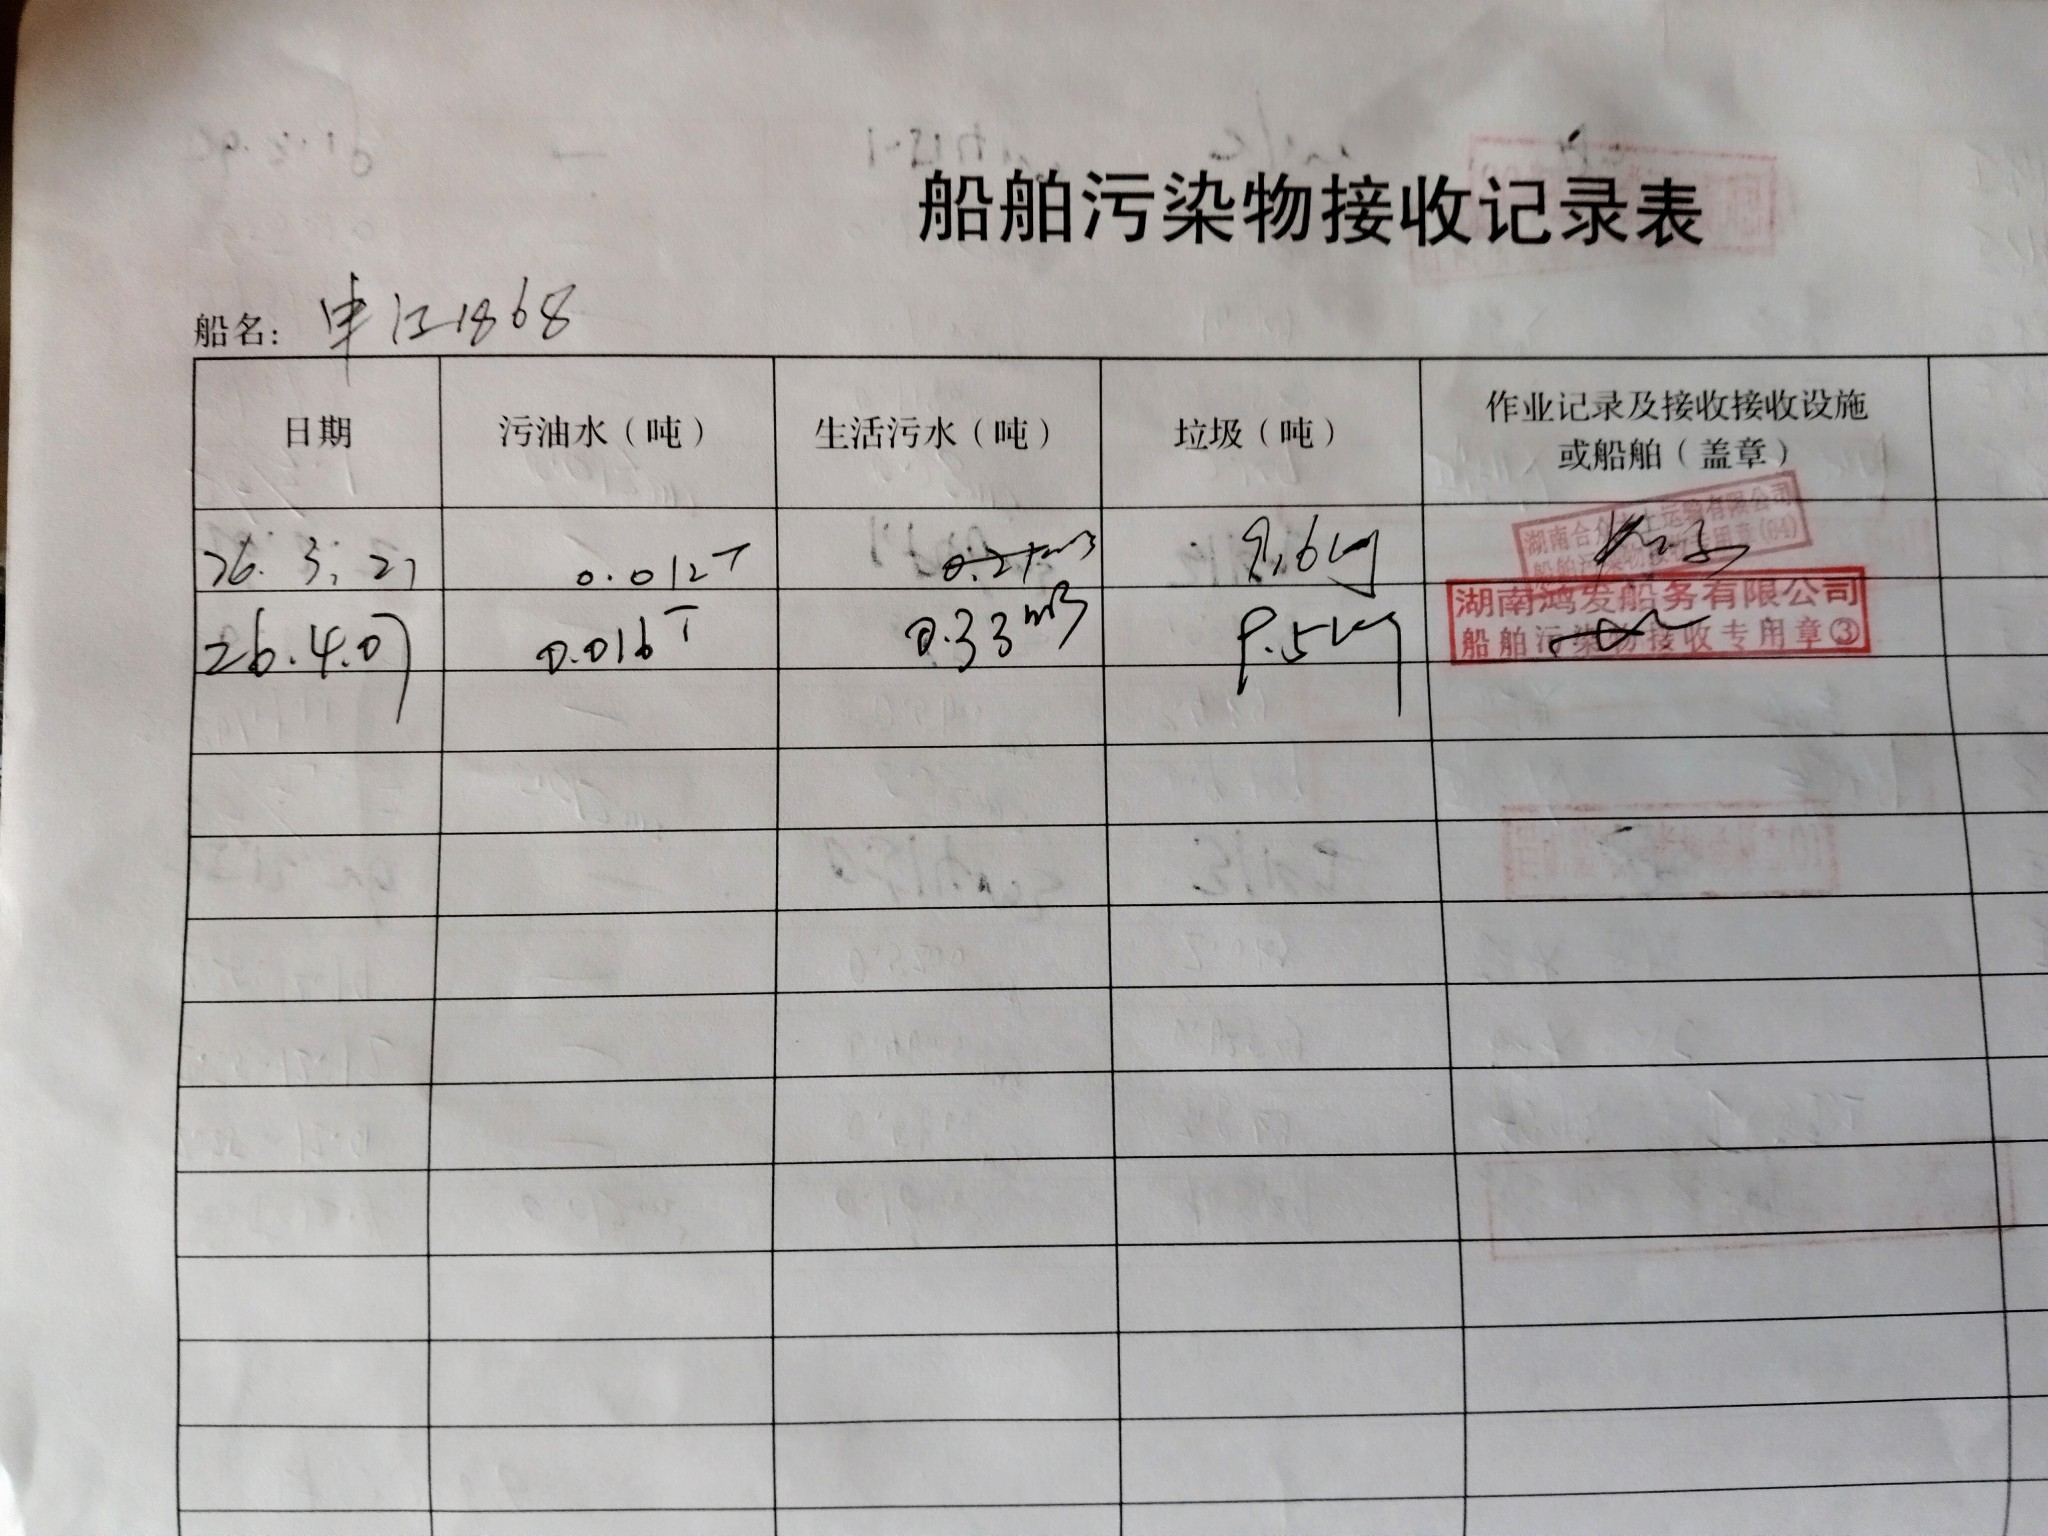 船舶污染物接收记录表
船名: 申江1868
日期 污油水(吨) 生活污水(吨) 垃圾(吨) 作业记录及接收接收设施
或船舶(盖章)
湖南合众 运输有限公司
船舶污染物接收专用章(04)
26.3.27 0.012T 0.27m3 9.6kg
湖南鸿发船务有限公司
船舶污染物接收专用章③
26.4.07 0.016T 0.33m3 9.5kg